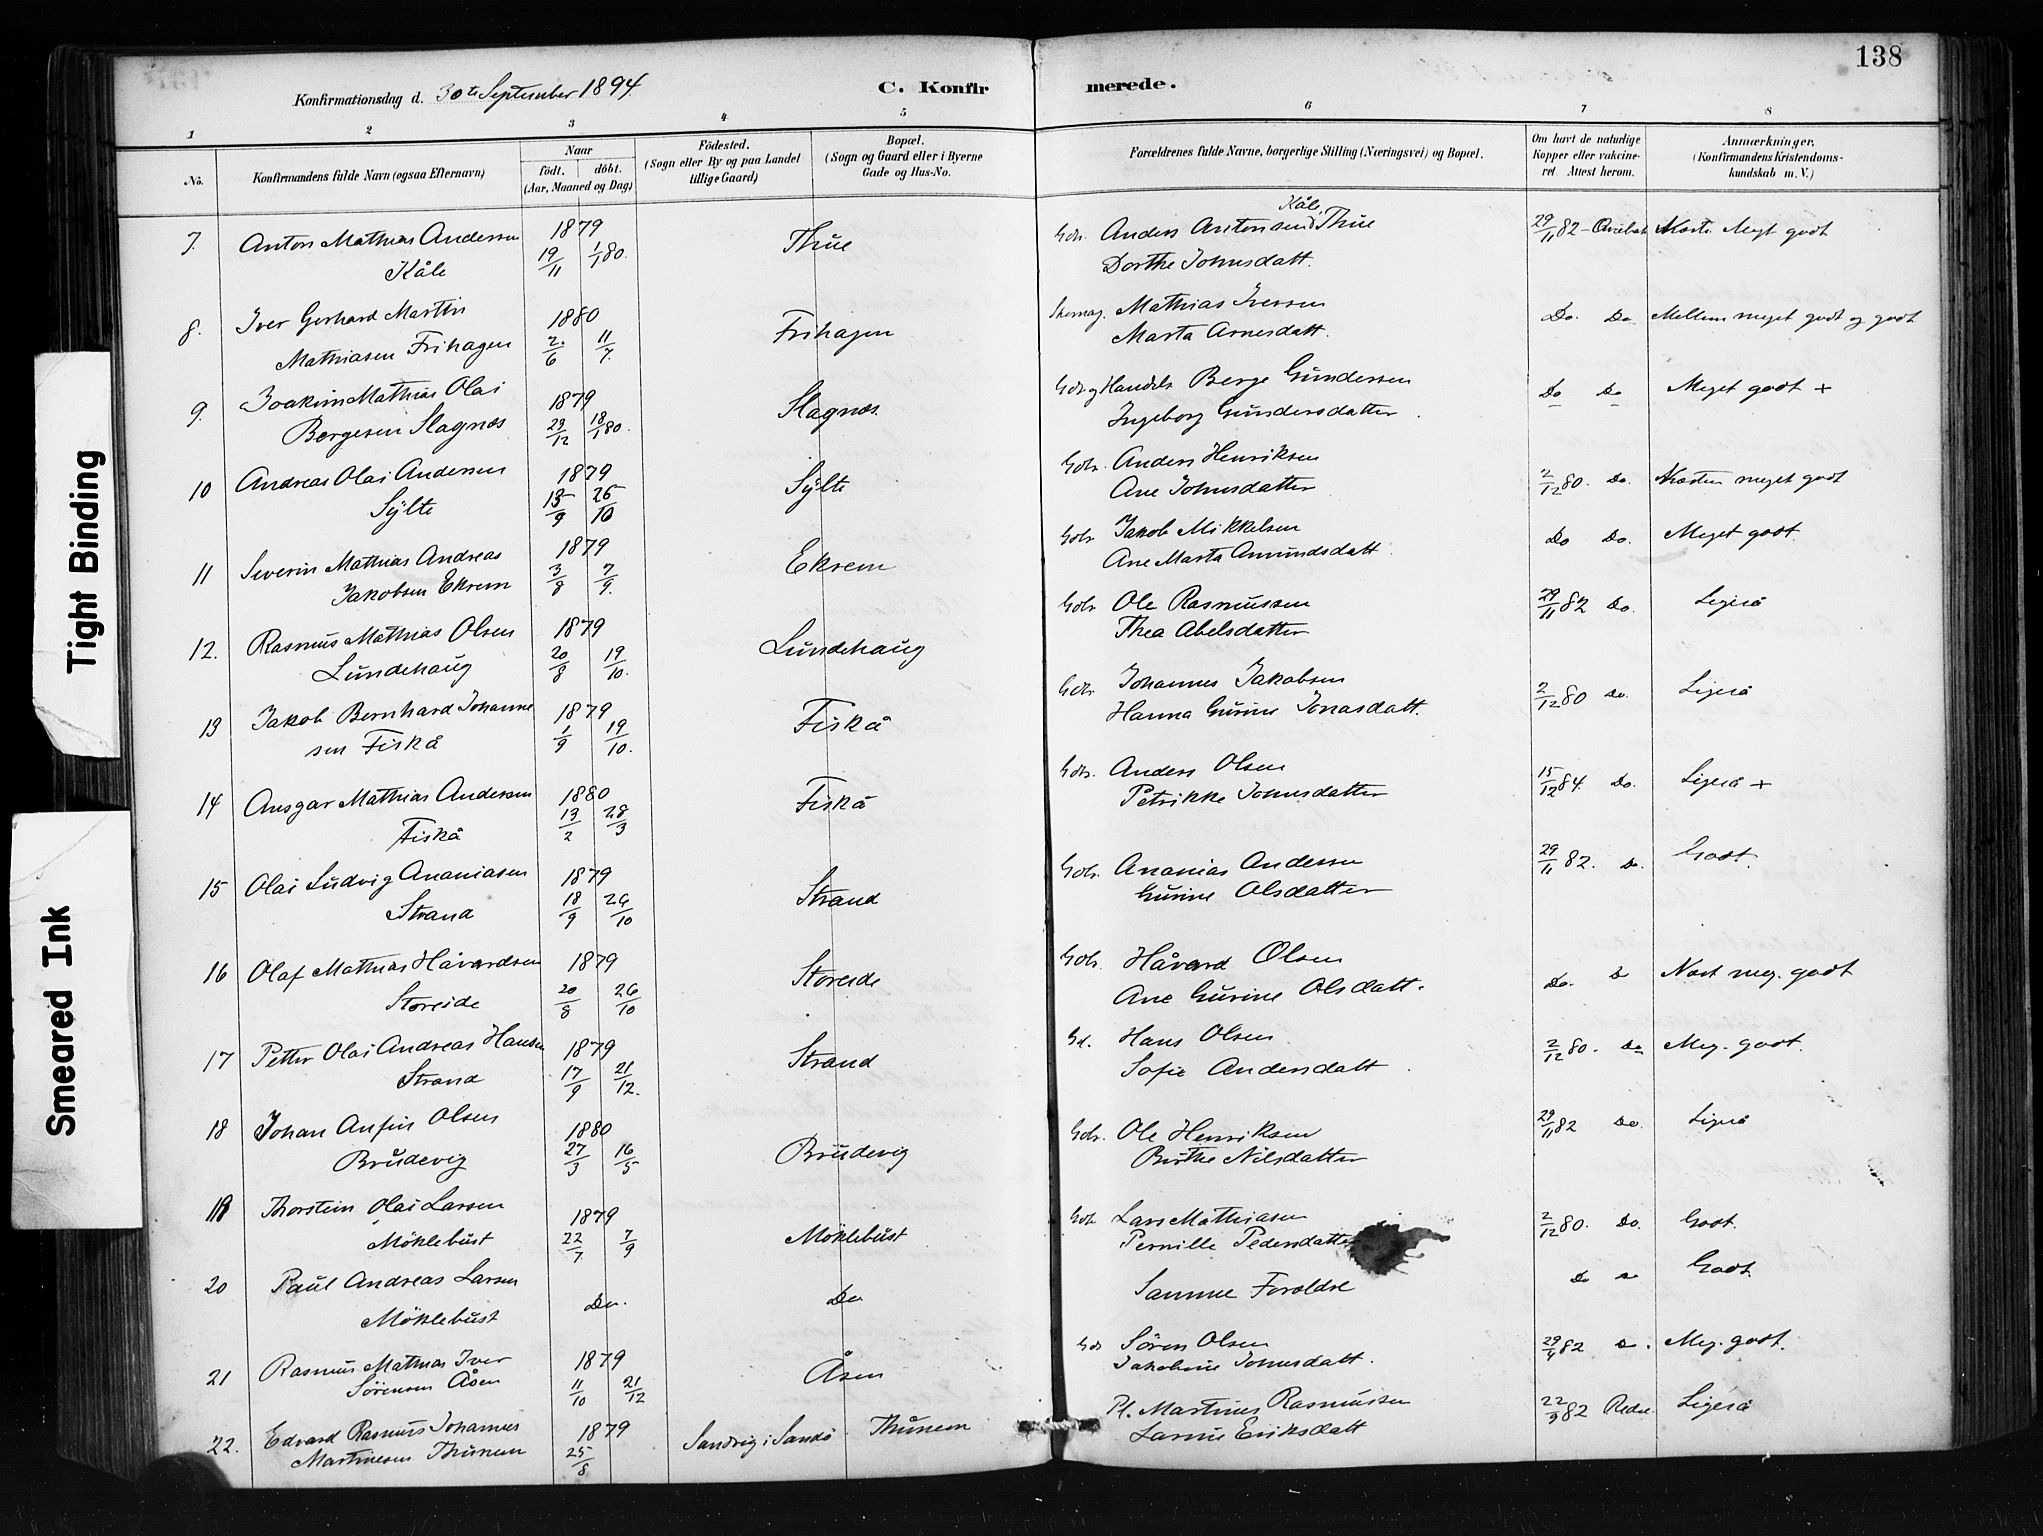 138
Konfirmationsdag d. 30te September 1894
C. Konfirmerede.
1 2 3 4 5 6 7 8
No. Konfirmandens fulde Navn (ogsaa Efternavn) Naar født. døbt. (Aar, Maaned og Dag) Fødested. (Sogn eller By og paa Landet tillige Gaard) Bopæl. (Sogn og Gaard eller i Byerne Gade og Hus-No. Forældrenes fulde Navne, borgerlige Stilling (Næringsvei) og Bopæl. Om havt de naturlige Kopper eller vakcineret Attest herom. Anmærkninger. (Konfirmandens Kristendomskundskab m. V.)
7. Anton Mathias Andersen 1879 Thue Gbr. Anders Antonsen Kåle, Thue 29/11 82 Meget godt
Kåle 19/11 1/1 80. Dorthe Johnsdatt.
8. Iver Gerhard Martin 1880 Frihagen Mathias Iversen Do. Do. Mellem meget godt og godt
Mathiasen Frihagen 2/6 11/7. Marta Arnesdatt.
9. Joakim Mathias Olai 1879 Slagnes Gbr og Handels Berge Gundersen Do Do Meget godt +
Bergesen Slagnes 29/12 18/1 80. Ingeborg Gundersdatter
10 Andreas Olai Andersen 1879 Sylte Gbr. Anders Henriksen 2/12 80. Do. Næsten meget godt
Sylte 13/9 26/10 Ane Johnsdatter
11 Severin Mathias Andreas 1879 Ekrem Gbr Jakob Mikkelsen Do Do. Meget godt.
Jakobsen Ekrem 3/8 7/9. Ane Marta Amundsdatt.
12. Rasmus Mathias Olsen 1879 Lundehaug Gbr Ole Rasmussen 29/11 82 Do. Ligeså
Lundehaug 20/8 19/10. Thea Abelsdatter
13 Jakob Bernhard Johanne 1879 Fiskå Gbr Johannes Jakobsen 2/12 80 Do. Ligeså
sen Fiskå 1/9 19/10. Hanna Gurine Jonasdatt.
14 Ansgar Mathias Andersen 1880 Fiskå Gbr. Anders Olsen 15/12 84. Do. Ligeså +
Fiskå 13/2 28/3 Petrikke Johnsdatter
15 Olai Ludvig Ananiasen 1879 Strand Gbr. Ananias Andersen 29/11 82. Do. Godt
Strand 18/9 26/10 Gurine Olsdatter
16 Olaf Mathias Håvardsen 1879 Storeide Gbr. Håvard Olsen Do. Do Næst meg. godt
Storeide 20/8 26/10 Ane Gurine Olsdatt.
17 Petter Olai Andreas Hansen 1879 Strand Gd. Hans Olsen 2/12 80. Do Meg. godt.
Strand 17/9 21/12. Sofie Andersdatt
18 Johan Anfin Olsen 1880 Brudevig Gbr. Ole Henriksen 29/11 82 Do. Ligeså
Brudevig 27/3 16/5 Birthe Nilsdatter
19 Thorstein Olai Larsen 1879 Möklebust Gbr Lars Mathiasen 2/12 80. Do. Godt.
Möklebust 22/7 7/9 Pernille Pedersdatter
20 Paul Andreas Larsen Do. Do Samme Forældre Do Godt.
Möklebust
21 Rasmus Mathias Iver 1879 Åsen Gbr Sören Olsen 29/9 82 Do. Meg. godt.
Sörensen Åsen 11/10 21/12 Jakobine Jonsdatt.
22. Edvard Rasmus Johannes 1879 Sandvig i Sandö Thunem Pl. Martinus Rasmussen 22/9 82 Ligeså
Martinesen Thunem 25/8 Larine Eriksdatt
Tight Binding
Smeared Ink